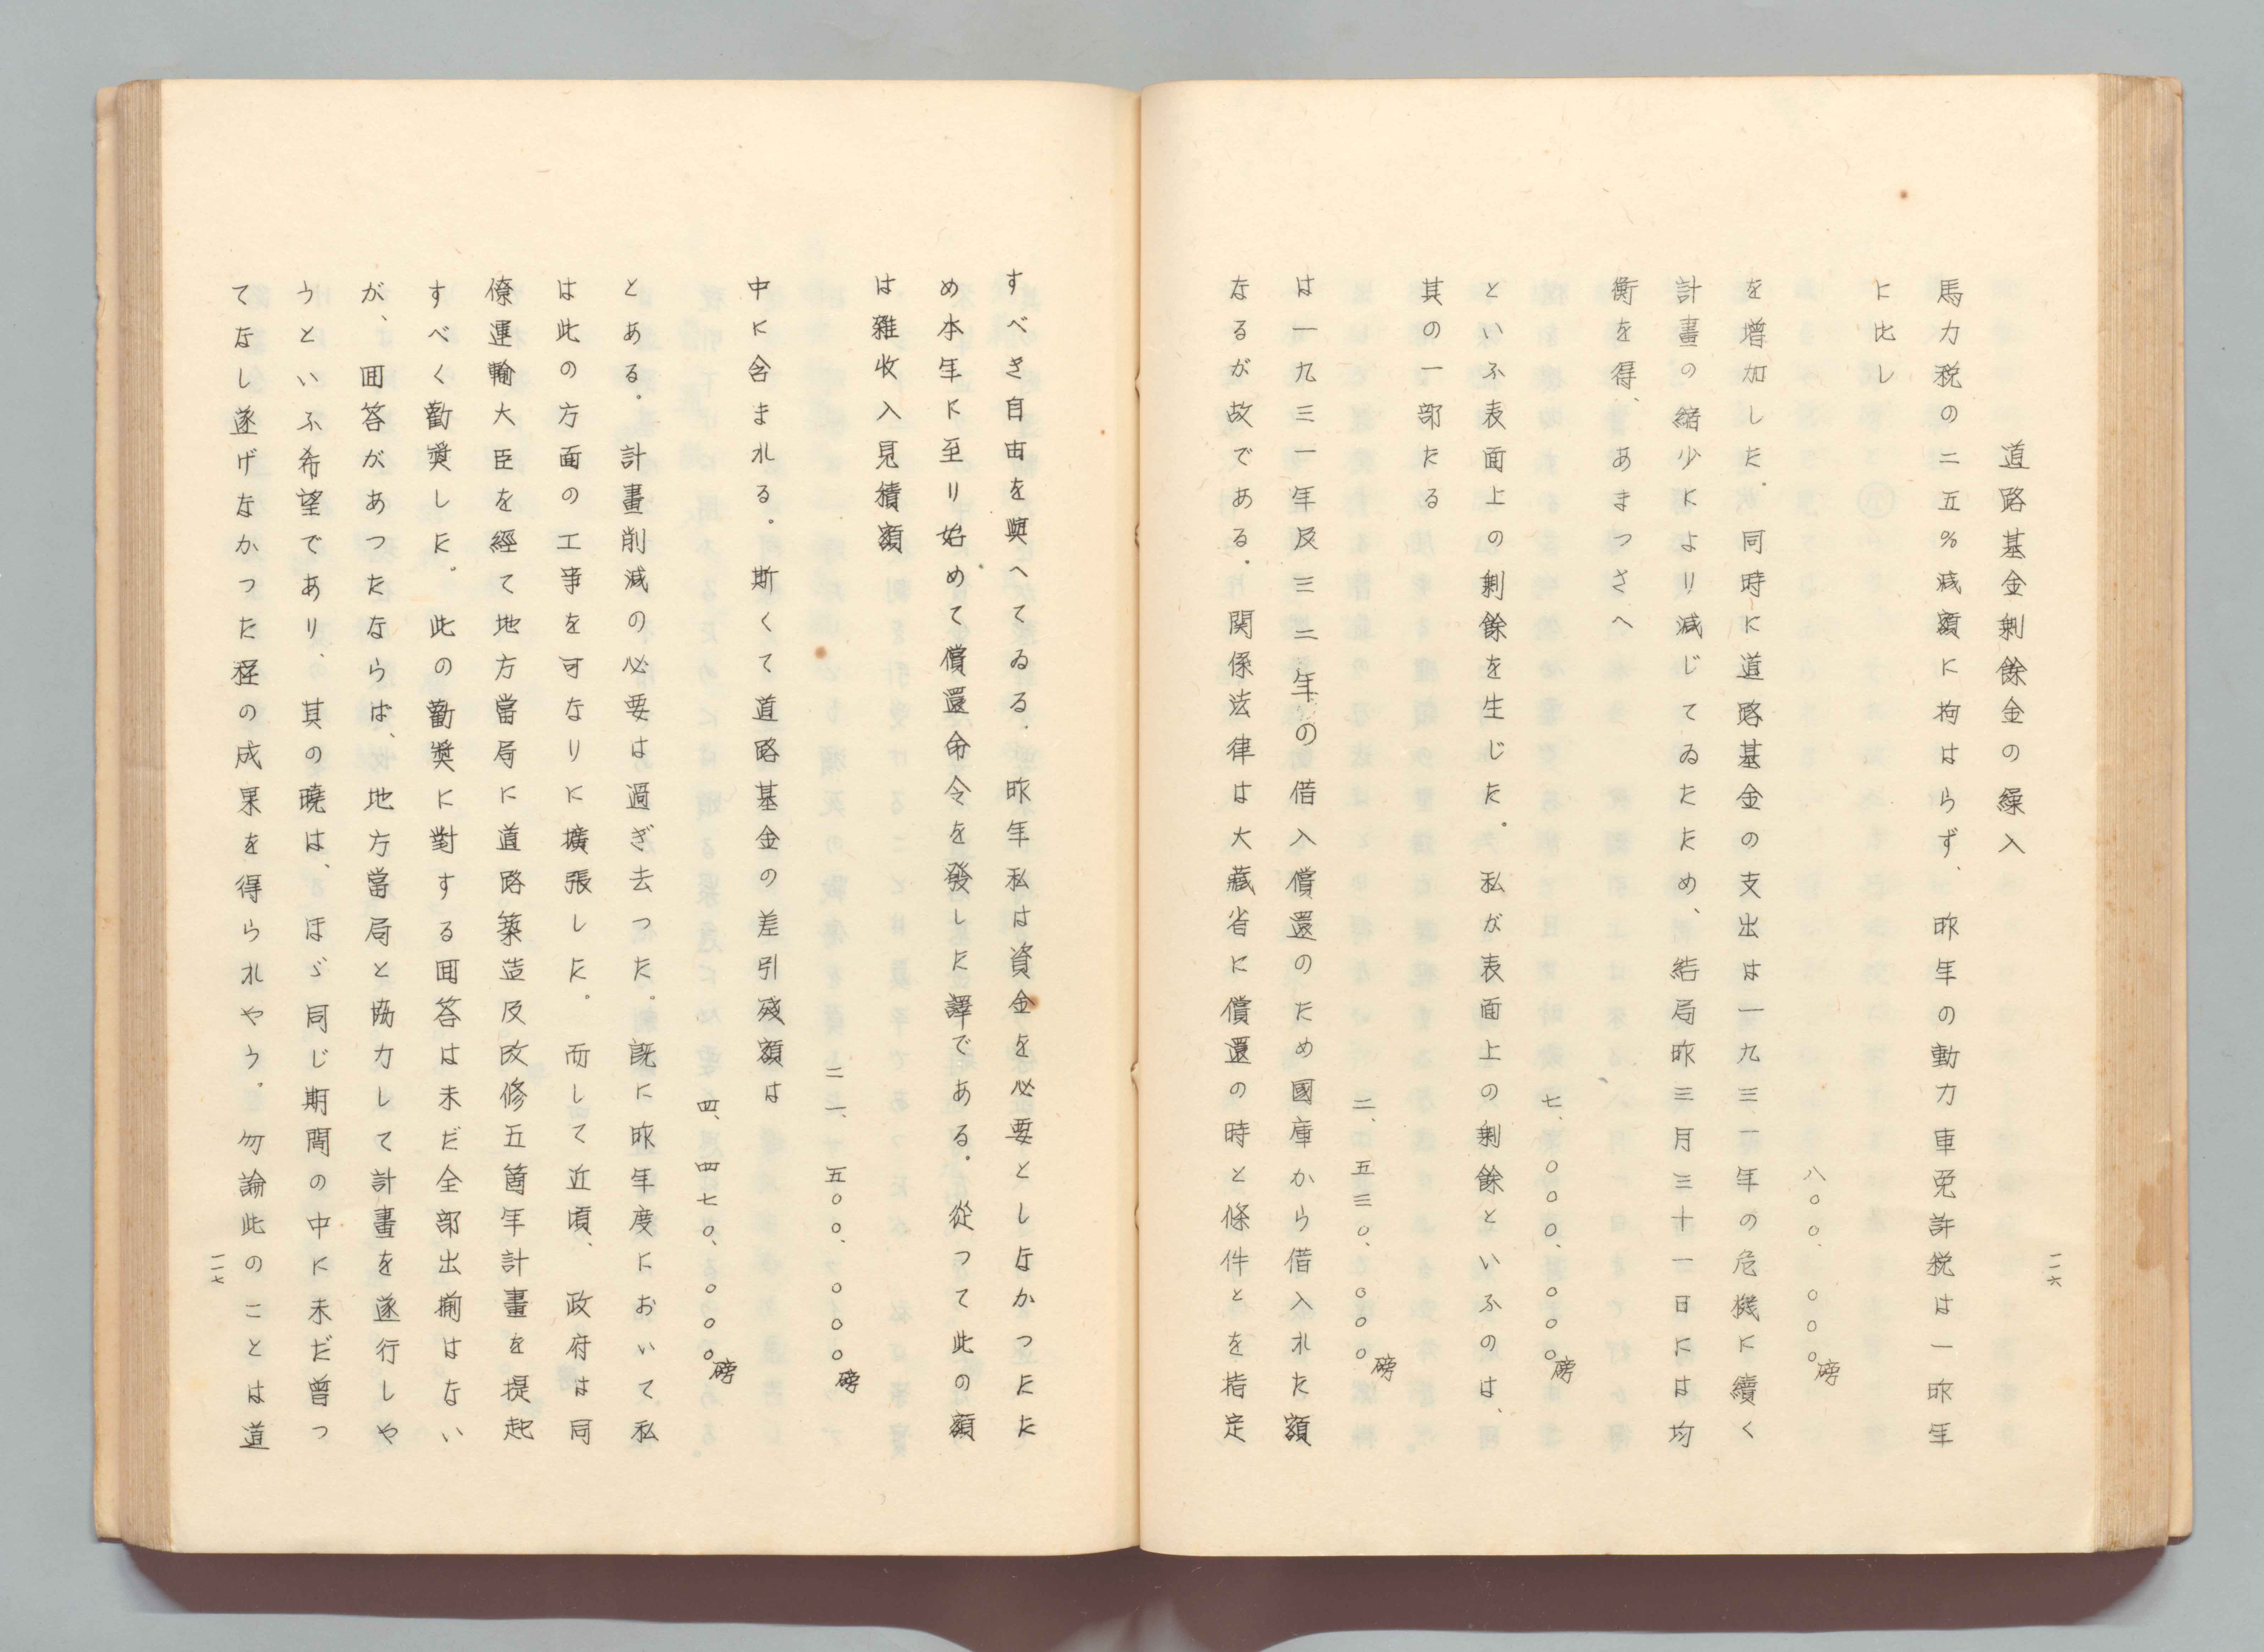 道路基金剰餘金の繰入
馬力税の二五%減額に拘はらず、昨年の動力車免許税は一昨年
に比し
八〇〇、〇〇〇磅
を増加した。同時に道路基金の支出は一九三一年の危機に續く
計畫の縮少により減じてゐたため、結局昨三月三十一日には均
衡を得、あまつさへ
七、〇〇〇、〇〇〇磅
といふ表面上の剰餘を生じた。私が表面上の剰餘といふのは、
其の一部たる
二、五三〇、〇〇〇磅
は一九三一年及三二年の借入償還のため國庫から借入れた額
なるが故である。関係法律は大藏省に償還の時と條件とを指定
一一六
すべき自由を與へてゐる。昨年私は資金を必要としなかつたた
め本年に至り始めて償還命令を發した譯である。從つて此の額
は雜收入見積額
二一、五〇〇、〇〇〇磅
中に含まれる。斯くて道路基金の差引殘額は
四、四七〇、〇〇〇磅
とある。計畫削減の必要は過ぎ去つた。既に昨年度において私
は此の方面の工事を可なりに擴張した。而して近頃、政府は同
僚運輸大臣を經て地方當局に道路築造及改修五箇年計畫を提起
すべく勸奬した。此の勸奬に對する囬答は未だ全部出揃はない
が、囬答があつたならば、地方當局と協力して計畫を遂行しや
うといふ希望であり、其の曉は、ほゞ同じ期間の中に未だ曾つ
てなし遂げなかつた程の成果を得られやう。勿論此のことは道
一一七